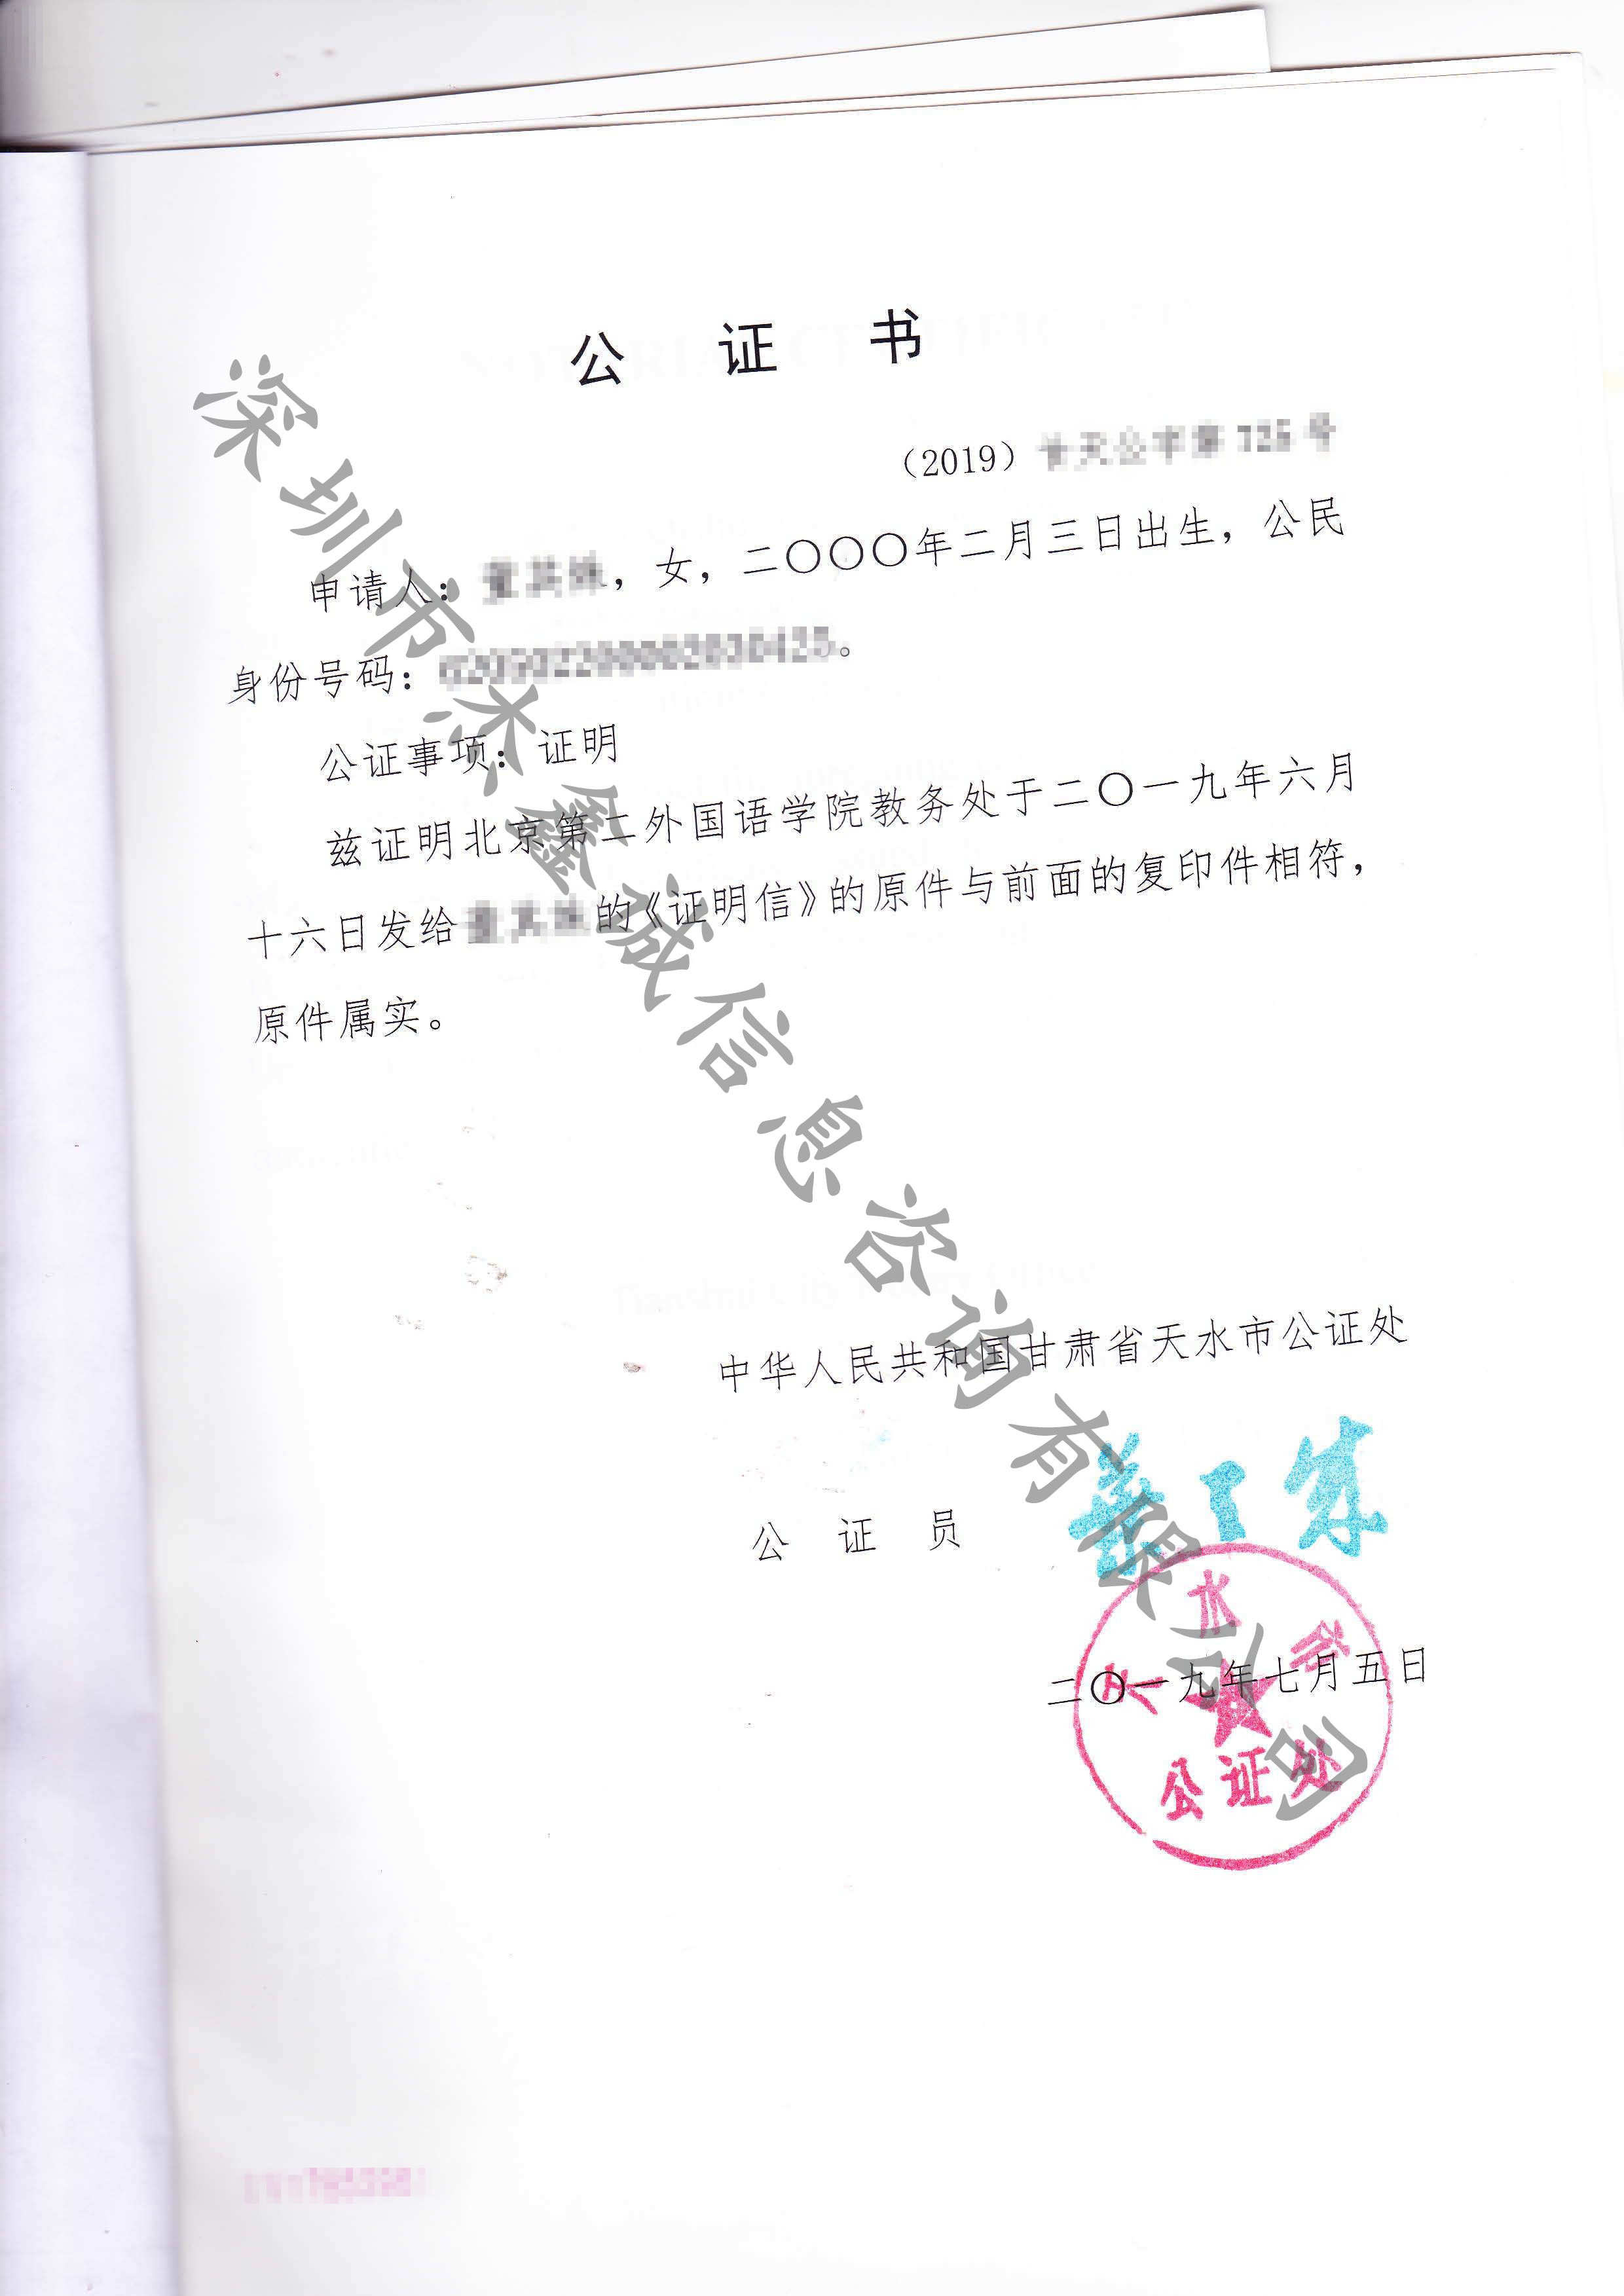 公 证 书
（2019）
申请人：，女，二〇〇〇年二月三日出生，公民
身份号码：。
公证事项：证明
兹证明北京第二外国语学院教务处于二〇一九年六月
十六日发给的《证明信》的原件与前面的复印件相符，
原件属实。
中华人民共和国甘肃省天水市公证处
公 证 员
二〇一九年七月五日
天水市
公证处
深圳市杰鑫诚信息咨询有限公司